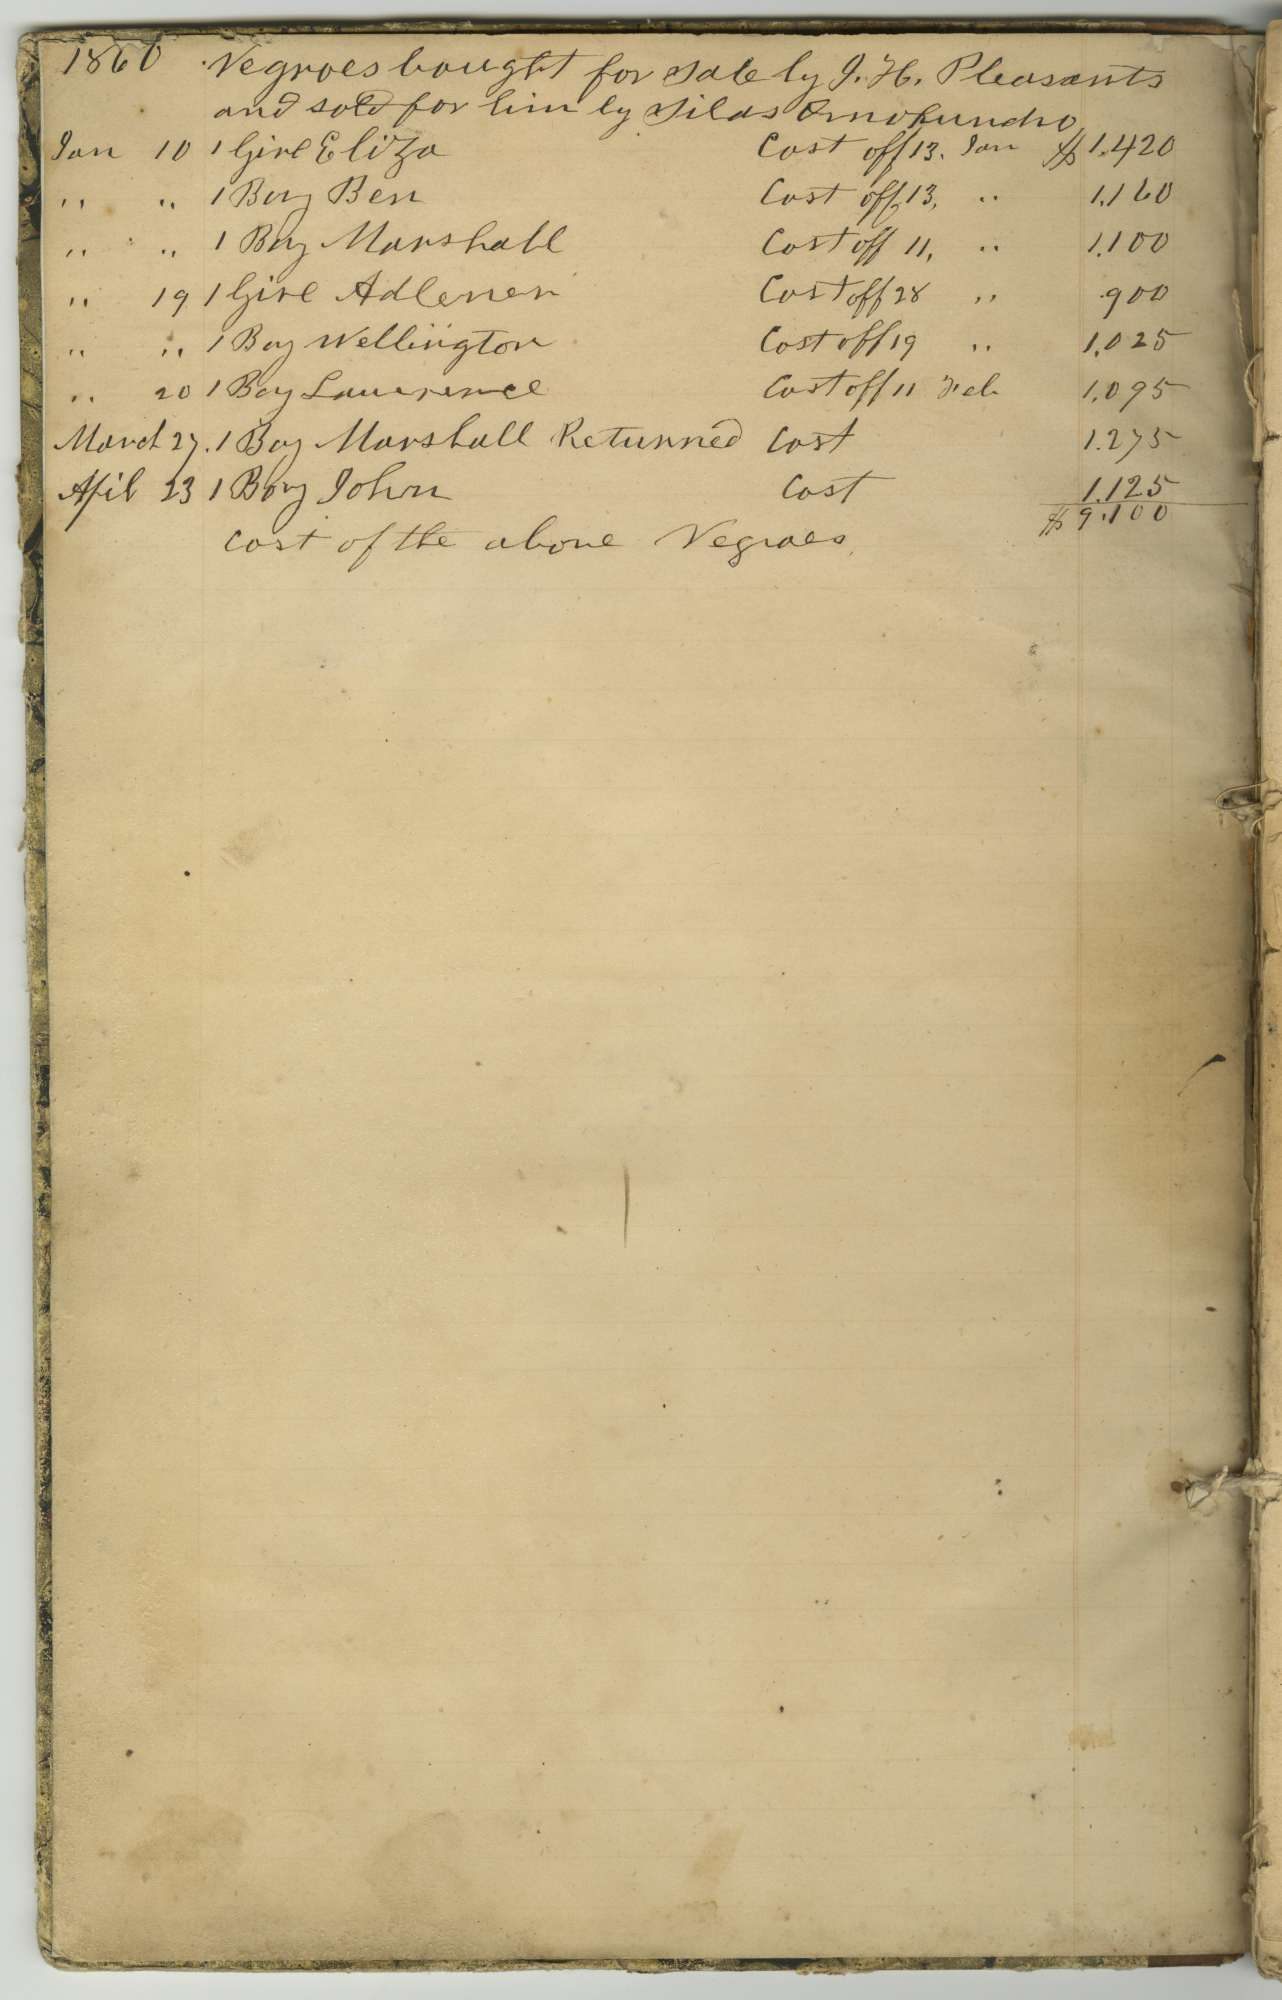 1860 Negroes bought for sale by J. H. Pleasants
and sold for him by Silas Omohundro
Jan 10 1 Girl Eliza Cost off 13. Jan $1.420
" " 1 Boy Ben Cost off 13, " 1.160
" " 1 Boy Marshall Cost off 11, " 1.100
" 19 1 Girl Cost off 28 " 900
" " 1 Boy Wellington Cost off 19 " 1.025
" 20 1 Boy Lawrence Cost off 11 Feb 1.095
March 27. 1 Boy Marshall Returned Cost 1.275
April 23 1 Boy John Cost 1.125
Cost of the above Negroes $9.100